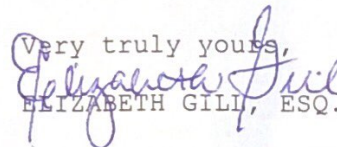 Very truly yours,
Elizabeth Gill
ELIZABETH GILL, ESQ.